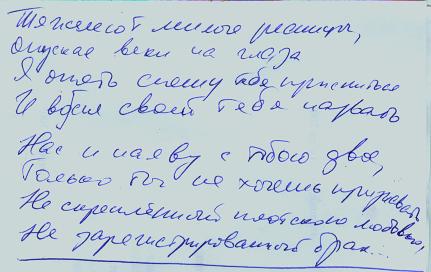 Тяжелеют милые ресницы,
опуская веки на глаза
Я опять спешу тебе присниться
И вновь своей тебя назвать
Нас и наяву с тобою двое,
Только ты не хочешь признавать
Не скреплённый плотскою любовью,
Не зарегистрированный брак...